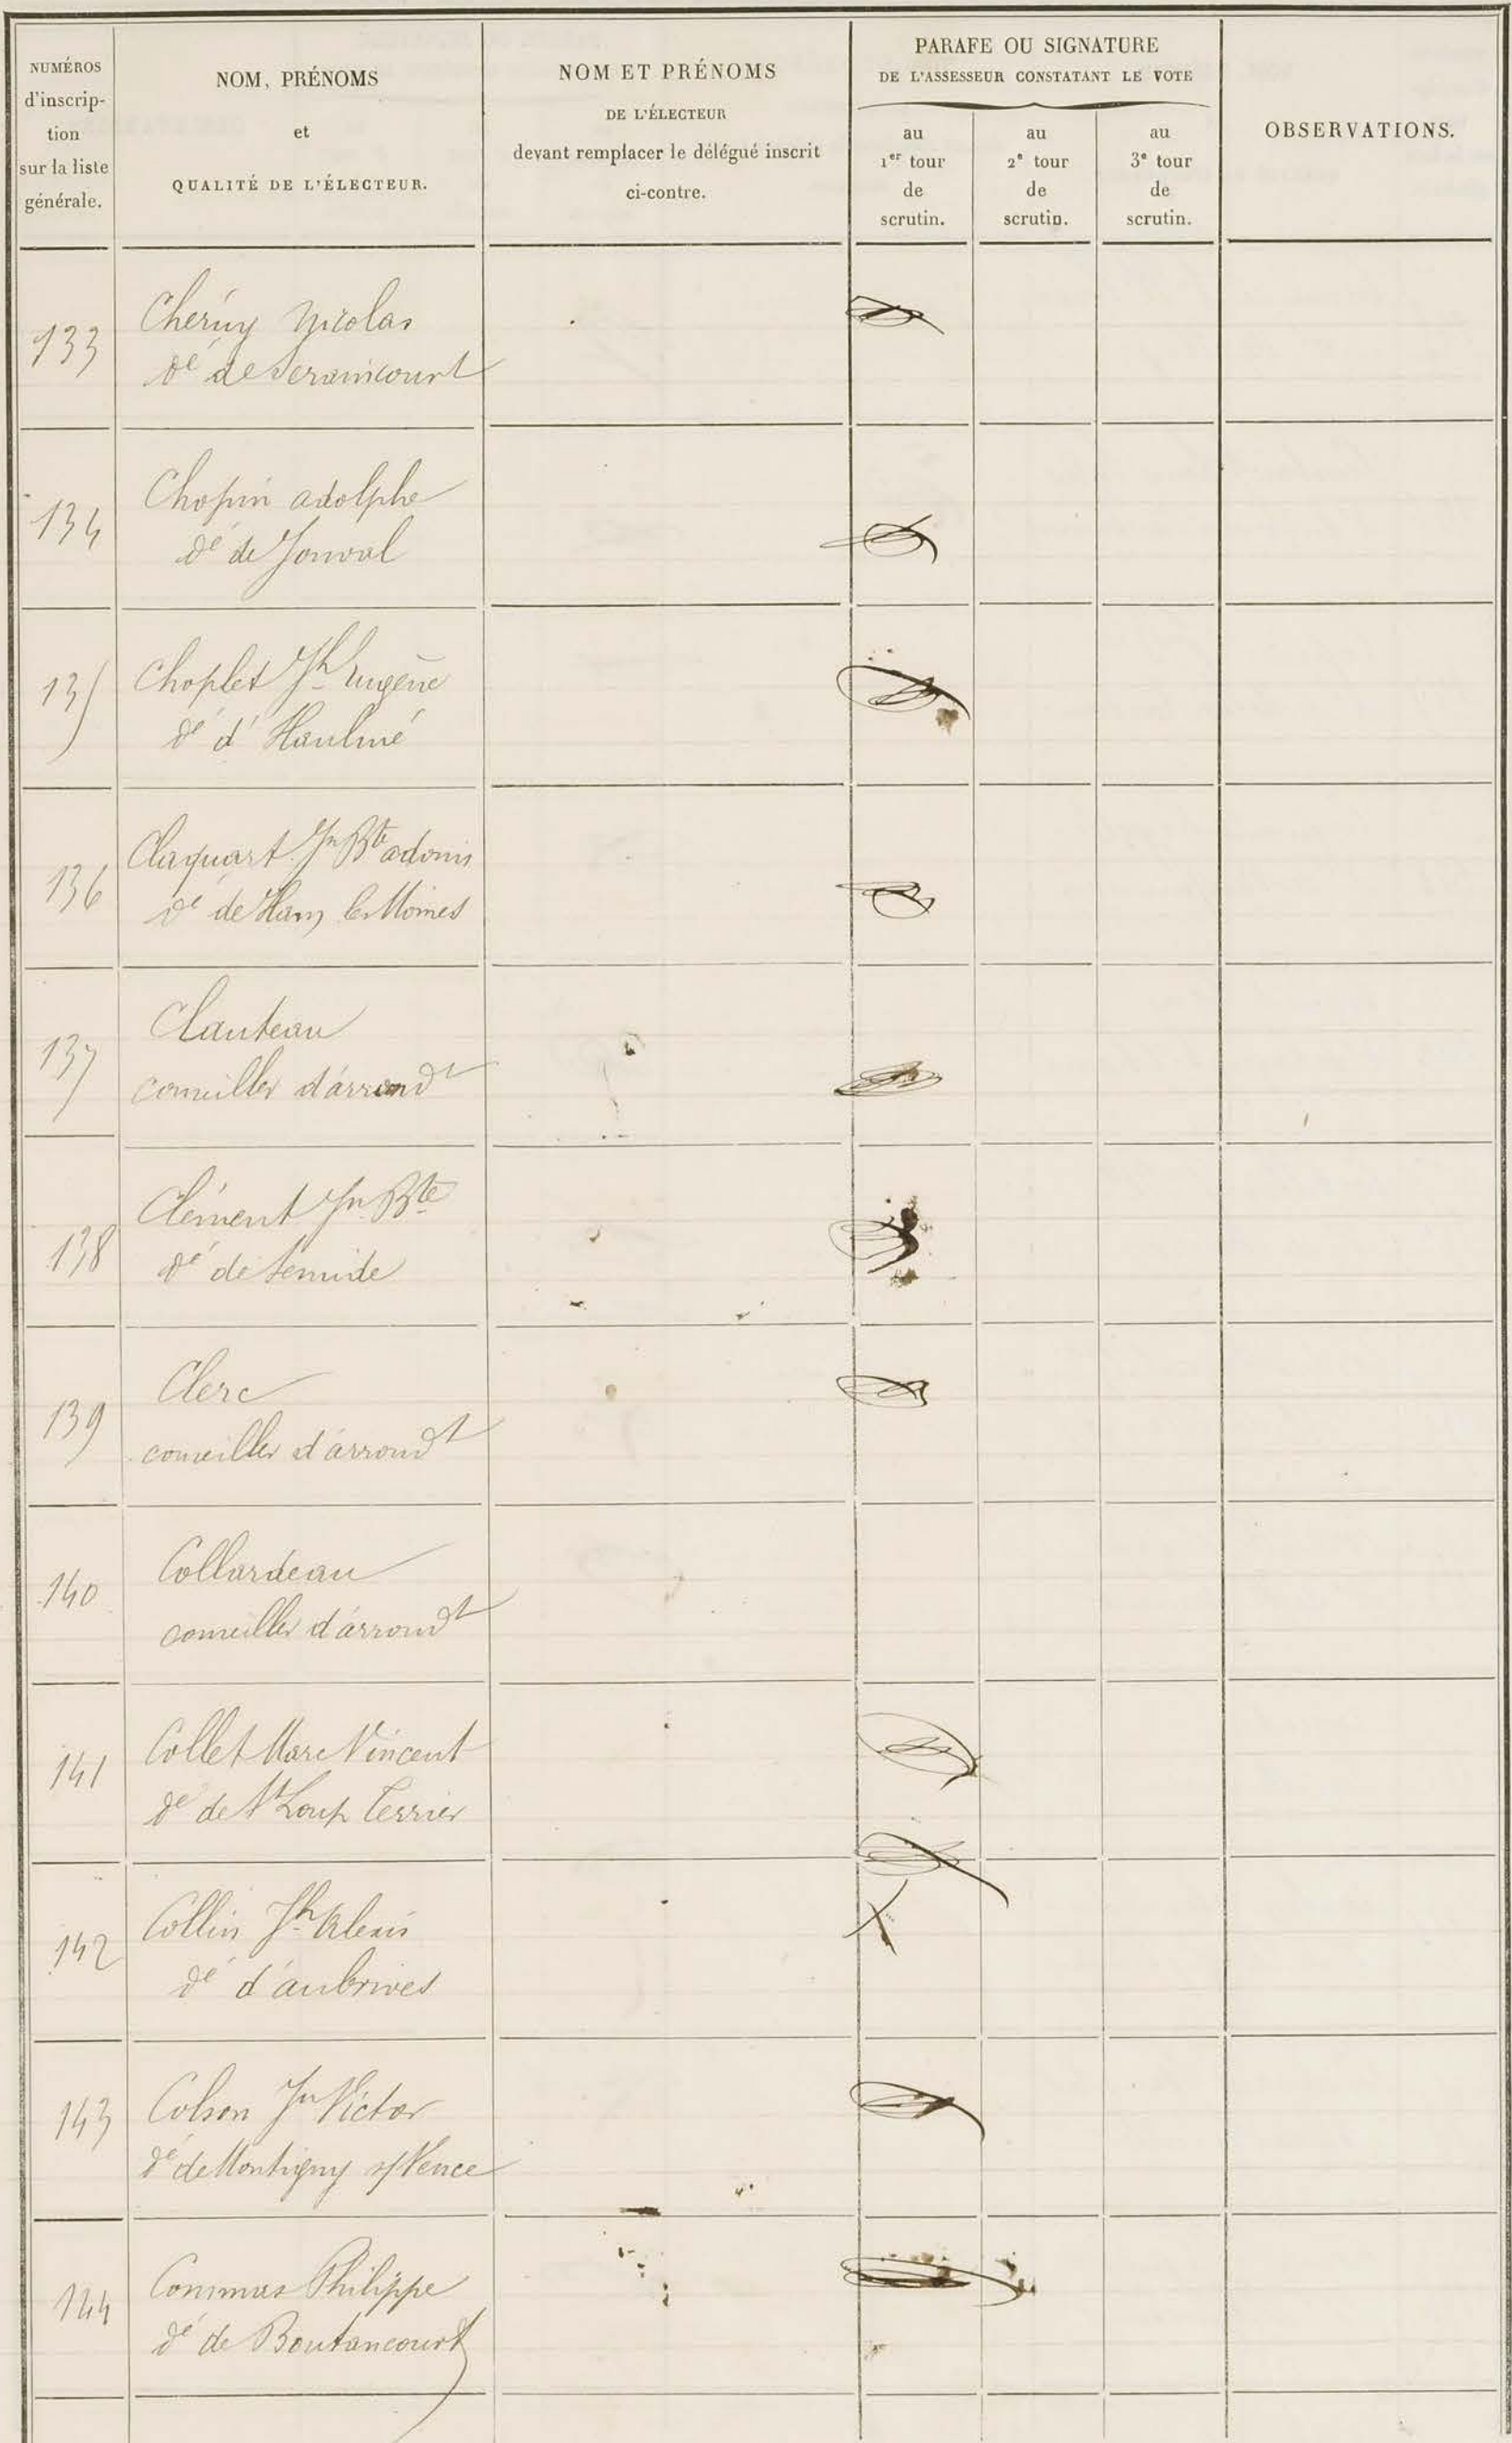 NUMÉROS
d'inscrip-
tion
sur la liste
générale.
NOM, PRÉNOMS
et
QUALITÉ DE L'ÉLECTEUR.
NOM ET PRÉNOMS
DE L'ÉLECTEUR
devant remplacer le délégué inscrit
ci-contre.
PARAFE OU SIGNATURE
DE L'ASSESSEUR CONSTATANT LE VOTE
au
1er tour
de
scrutin.
au
2e tour
de
scrutin.
au
3e tour
de
scrutin.
OBSERVATIONS.
133
Cheruy Nicolas
dé de Seraincourt
134
Chopin adolphe
dé de Jonval
135
Choplet Jh Eugène
dé d'Haulmé
136
Claquart Jn Bte adonis
dé de Ham les Moines
137
Clauteau
conseiller d'arrondt
138
Clément Jn Bte
dé de Semide
139
Clerc
conseiller d'arrondt
140
Collardeau
conseiller d'arrondt
141
Collet Marc Vincent
dé de St Loup Terrier
142
Collin Jh Alexis
dé d'aubrives
143
Colson Jn Victor
dé de Montigny s/Vence
144
Commas Philippe
dé de Boutancourt